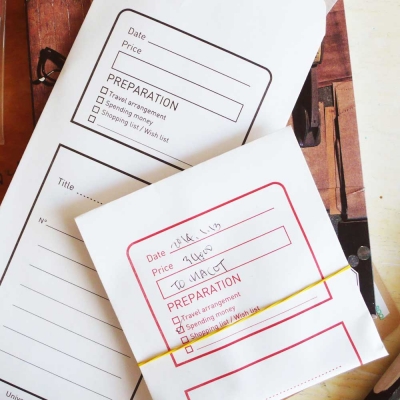 Date
Price
PREPARATION
Travel arrangement
Spending money
Shopping list / Wish list
Title
N°
Date
Price 31400
PREPARATION
Travel arrangement
Spending money
Shopping list / Wish list